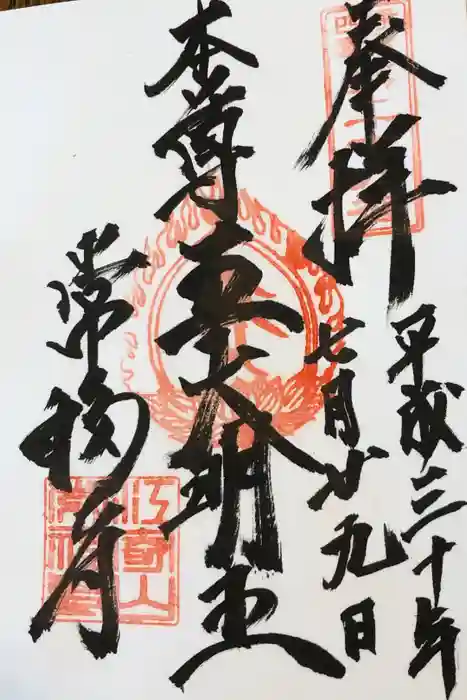 奉拝
平成三十年
七月廿九日
本尊五大明王
常福寺